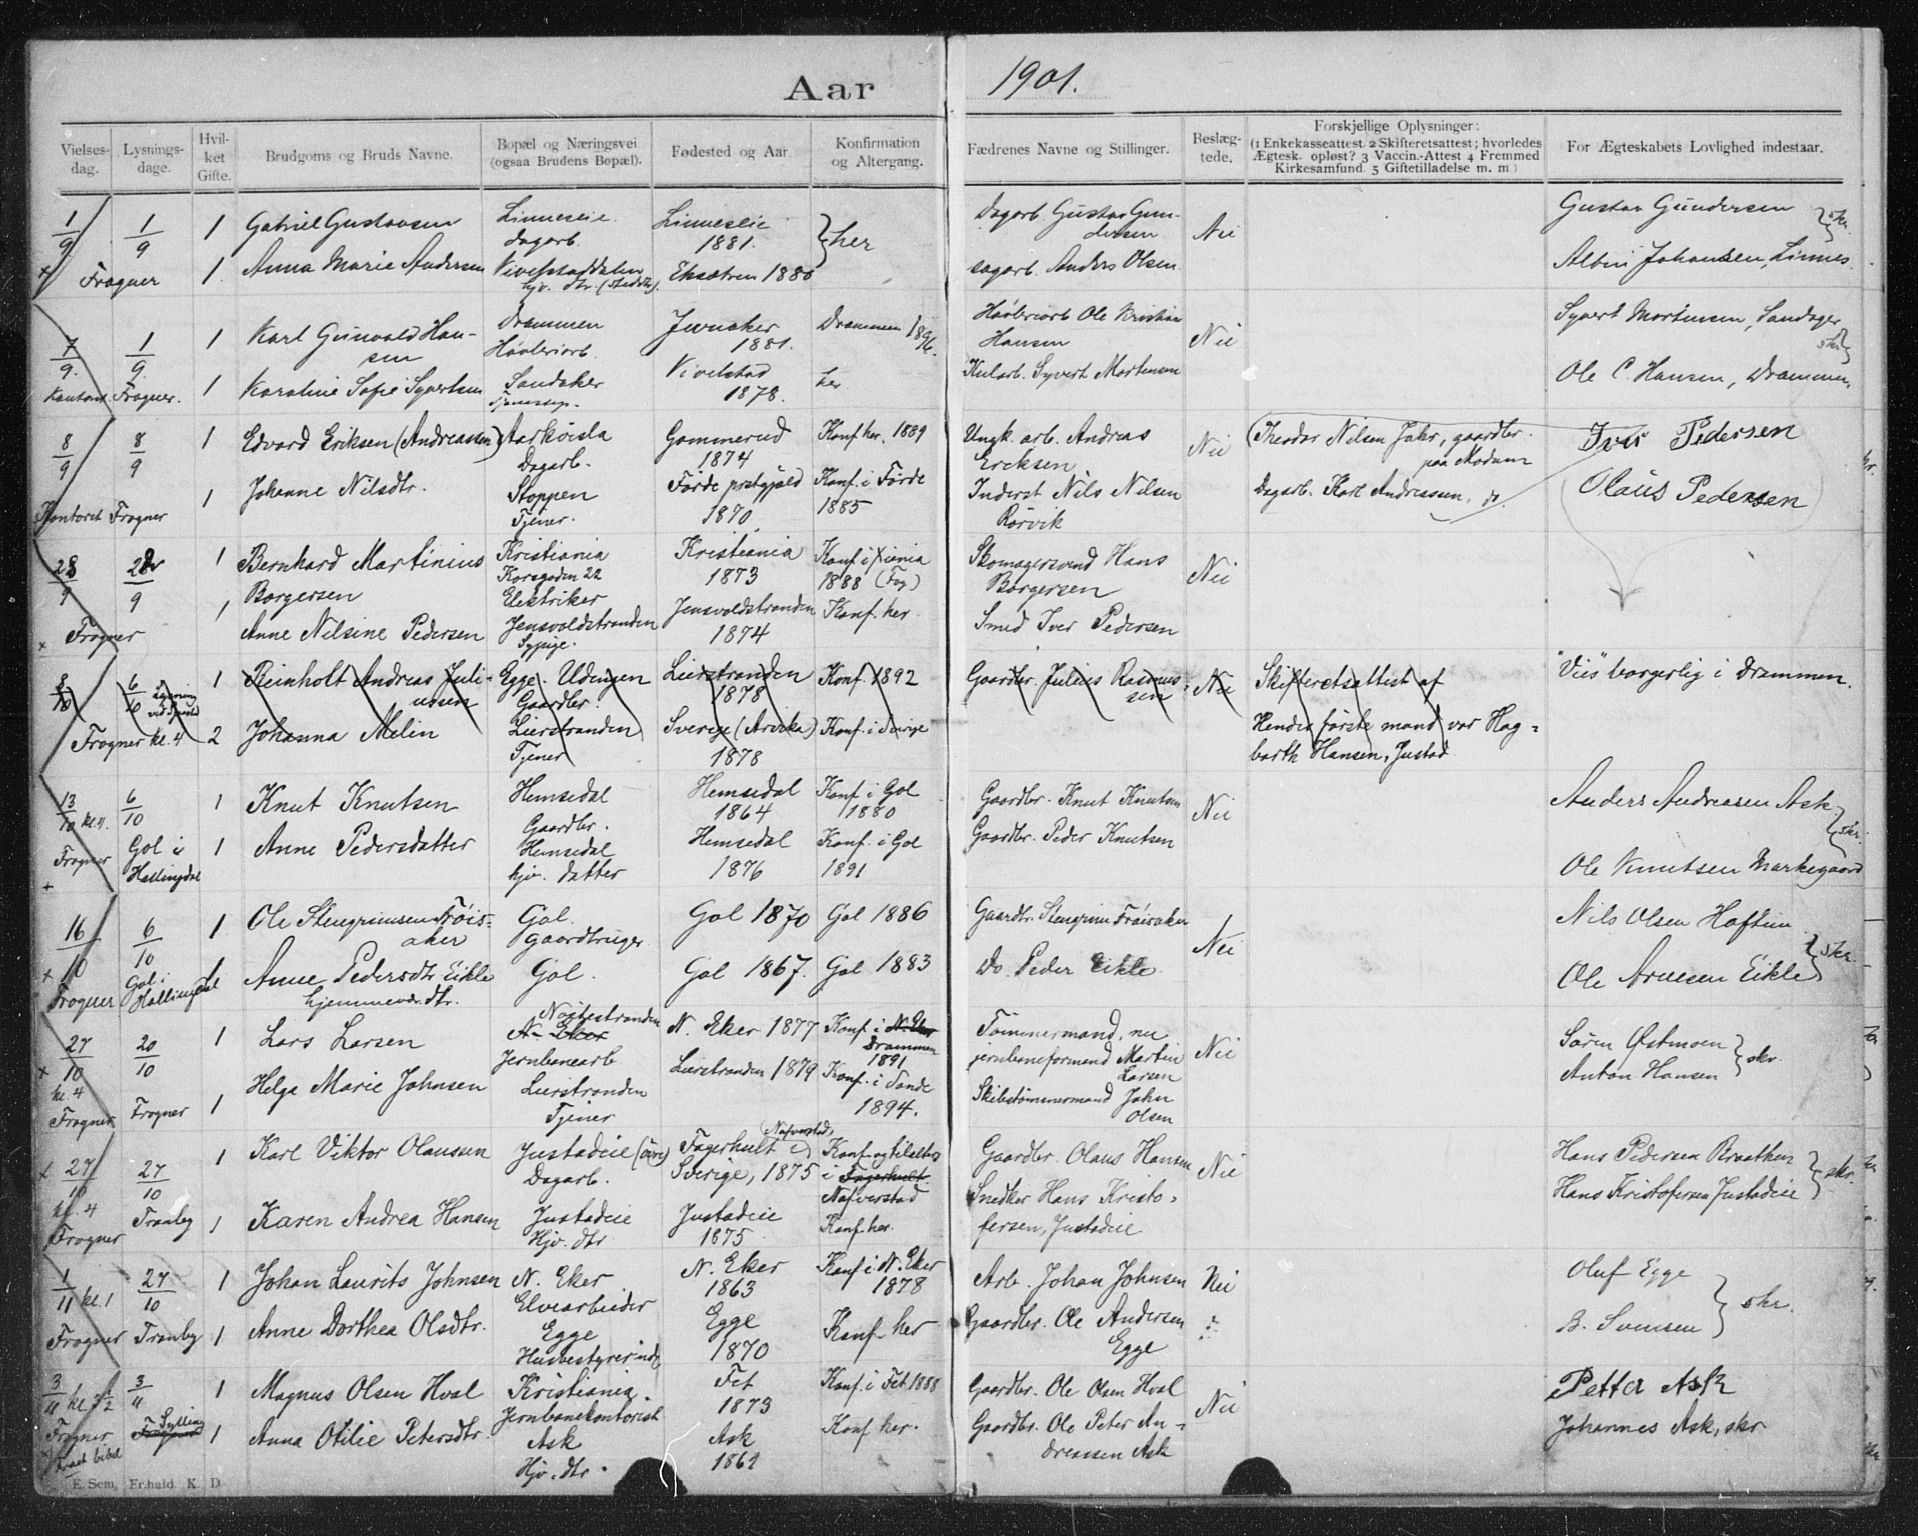 Aar 1901.
Vielses-dag.
Lysnings-dage.
Hvil-ket Gifte.
Brudgoms og Bruds Navne.
Bopæl og Næringsvei (ogsaa Brudens Bopæl).
Fødested og Aar.
Konfirmation og Altergang.
Fædrenes Navne og Stillinger.
Beslæg-tede.
Forskjellige Oplysninger:
(1 Enkekasseattest 2 Skifteretsattest; hvorledes
Ægtesk. opløst? 3 Vaccin.-Attest 4 Fremmed
Kirkesamfund 5 Giftetilladelse m. m)
For Ægteskabets Lovlighed indestaar.
1/9 1/9 1 Gabriel Gustavsen Linneseie Dagarb. Linneseie 1881. } her Dagarb. Gustav Gundersen Nei Gustav Gundersen } skr.
Frogner 1. Anna Marie Andersen Vivelstaddalen hjv. dtr. Eksætren 1880 sagarb. Anders Olsen Albin Johansen, Linnes.
7/9. 1/9 1 Karl Gunvald Hansen Drammen Høvleriarb. Jevnaker 1881. Drammen 1896. Høvleriarb Ole Kristian Hansen Nei Syvert Mortensen, Sandager
Kontoret Frogner. 1 Karoline Sofie Syvertsen Sandaker Vivelstad 1878. her Syvert Mortensen Ole C. Hansen, Drammen. } skr
8/9 8/9 1 Edvard Eriksen (Andreassen) Aarkvisla Dagarb. Gommerud 1874 Konf. her. 1889 Ungk. arb. Andreas Ericksen Nei (Theodor Nilsen Jahr, gaardbr. paa Modum Iver Pedersen
Kontoret Frogner 1 Johanne Nilsdtr. Stoppen Tjener. Førde prstgjæld 1870. Konf. i Førde 1885 Inderst Nils Nilsen Rørvik Dagarb. Karl Andreassen, do. Olaus Pedersen
28/9 9 1 Bernhard Martinius Borgersen Kristiania Korsgaden 22 Elektriker Kristiania 1873 Konf i Xiania 1888 Skomagersvend Hans Borgersen Nei
x Frogner 1 Anne Nilsine Pedersen Jensvoldstranden Sypige. Jensvoldstranden 1874 Konf. her. Smed Iver Pedersen
8/10 6/10 1 Reinholt Andreas Juliussen Egge Udengen Gaardbr. Lierstranden 1878 Konf. 1892 Gaardbr. Julius Rasmussen Nei Skifteretsattest af "Viet" borgerlig i Drammen.
Frogner kl. 4 2 Johanna Melin Lierstranden Tjener Sverige (Arvika) 1878 Konf. i Sverige Hendes første mand var Hagbarth Hansen, Justad
13/10 kl. 4. 6/10 1 Knut Knutsen Hemsedal Gaardbr. Hemsedal 1864 Konf. i Gol 1880 Gaardbr. Knut Knutsen Nei Anders Andreasen Ask } skr.
Frogner Gol i Hallingdal 1 Anne Pedersdatter Hemsedal hjv. datter Hemsedal 1876 Konf. i Gol 1891 Gaardbr. Peder Knutsen Ole Knutsen Markegaard
16/10 6/10 1. Ole Stengrimsen Frøisaker Gol. gaardbruger Gol 1870 Gol 1886 Gaardbr. Stengrim Frøisaker Nei Nils Olsen Haftun } skr.
Frogner Gol i Hallingdal 1 Anne Pedersdtr Eikle hjemmevær. dtr. Gol. Gol 1867. Gol 1883 Do. Peder Eikle Ole Arnesen Eikle
27/10 20/10 1 Lars Larsen Nøstestranden N. Eker Jernbanearb N. Eker 1877 Konf i N. Eker Drammen 1891 Tømmermand, nu jernbaneformand Martin Larsen Nei Søren Østmoen } skr.
kl. 4 Frogner Frogner 1 Helga Marie Johnsen Lierstranden Tjener Lierstranden 1879 Konf. i Sande 1894. Skibstømmermand John Olsen Anton Hansen
27/10 27/10 1 Karl Viktor Olausen Justadeie (øvre) Dagarb. Fagerhult i Nafverstad, Sverige, 1875 Konf. og tilalters i Fagerhult. Nafverstad Gaardbr. Olaus Hansen Nei Hans Pedersen Braathen } skr.
kl. 4 Frogner Tranby 1 Karen Andrea Hansen Justadeie Hjv. dtr Justadeie 1875 Konf her. Snedker Hans Kristofersen, Justadeie Hans Kristofersen Justadeie
1/11 kl. 1 27/10 1 Johan Laurits Johnsen N. Eker Elvearbeider N. Eker 1863 Konf i N. Eker 1878 Arb. Johan Johnsen Nei Oluf Egge } skr.
Frogner Tranby 1 Anne Dorthea Olsdtr. Egge Husbestyrerinde Egge 1870 Konf her Gaardbr. Ole Andersen Egge B. Svensen
3/11 kl. 2 1/2 3/11 1 Magnus Olsen Hval Kristiania. Jernbanekontorist Fet 1873 Konf. i Fet 1888 Gaardbr. Ole Olsen Hval Nei Petter Ask
Frogner Sylling 1 Anna Otilie Petersdtr. Ask Hjv. dtr. Ask 1869 Konf her. Gaardbr. Ole Peter Andreassen Ask Johannes Ask, skr.
E. Sem, Fr.hald K. D